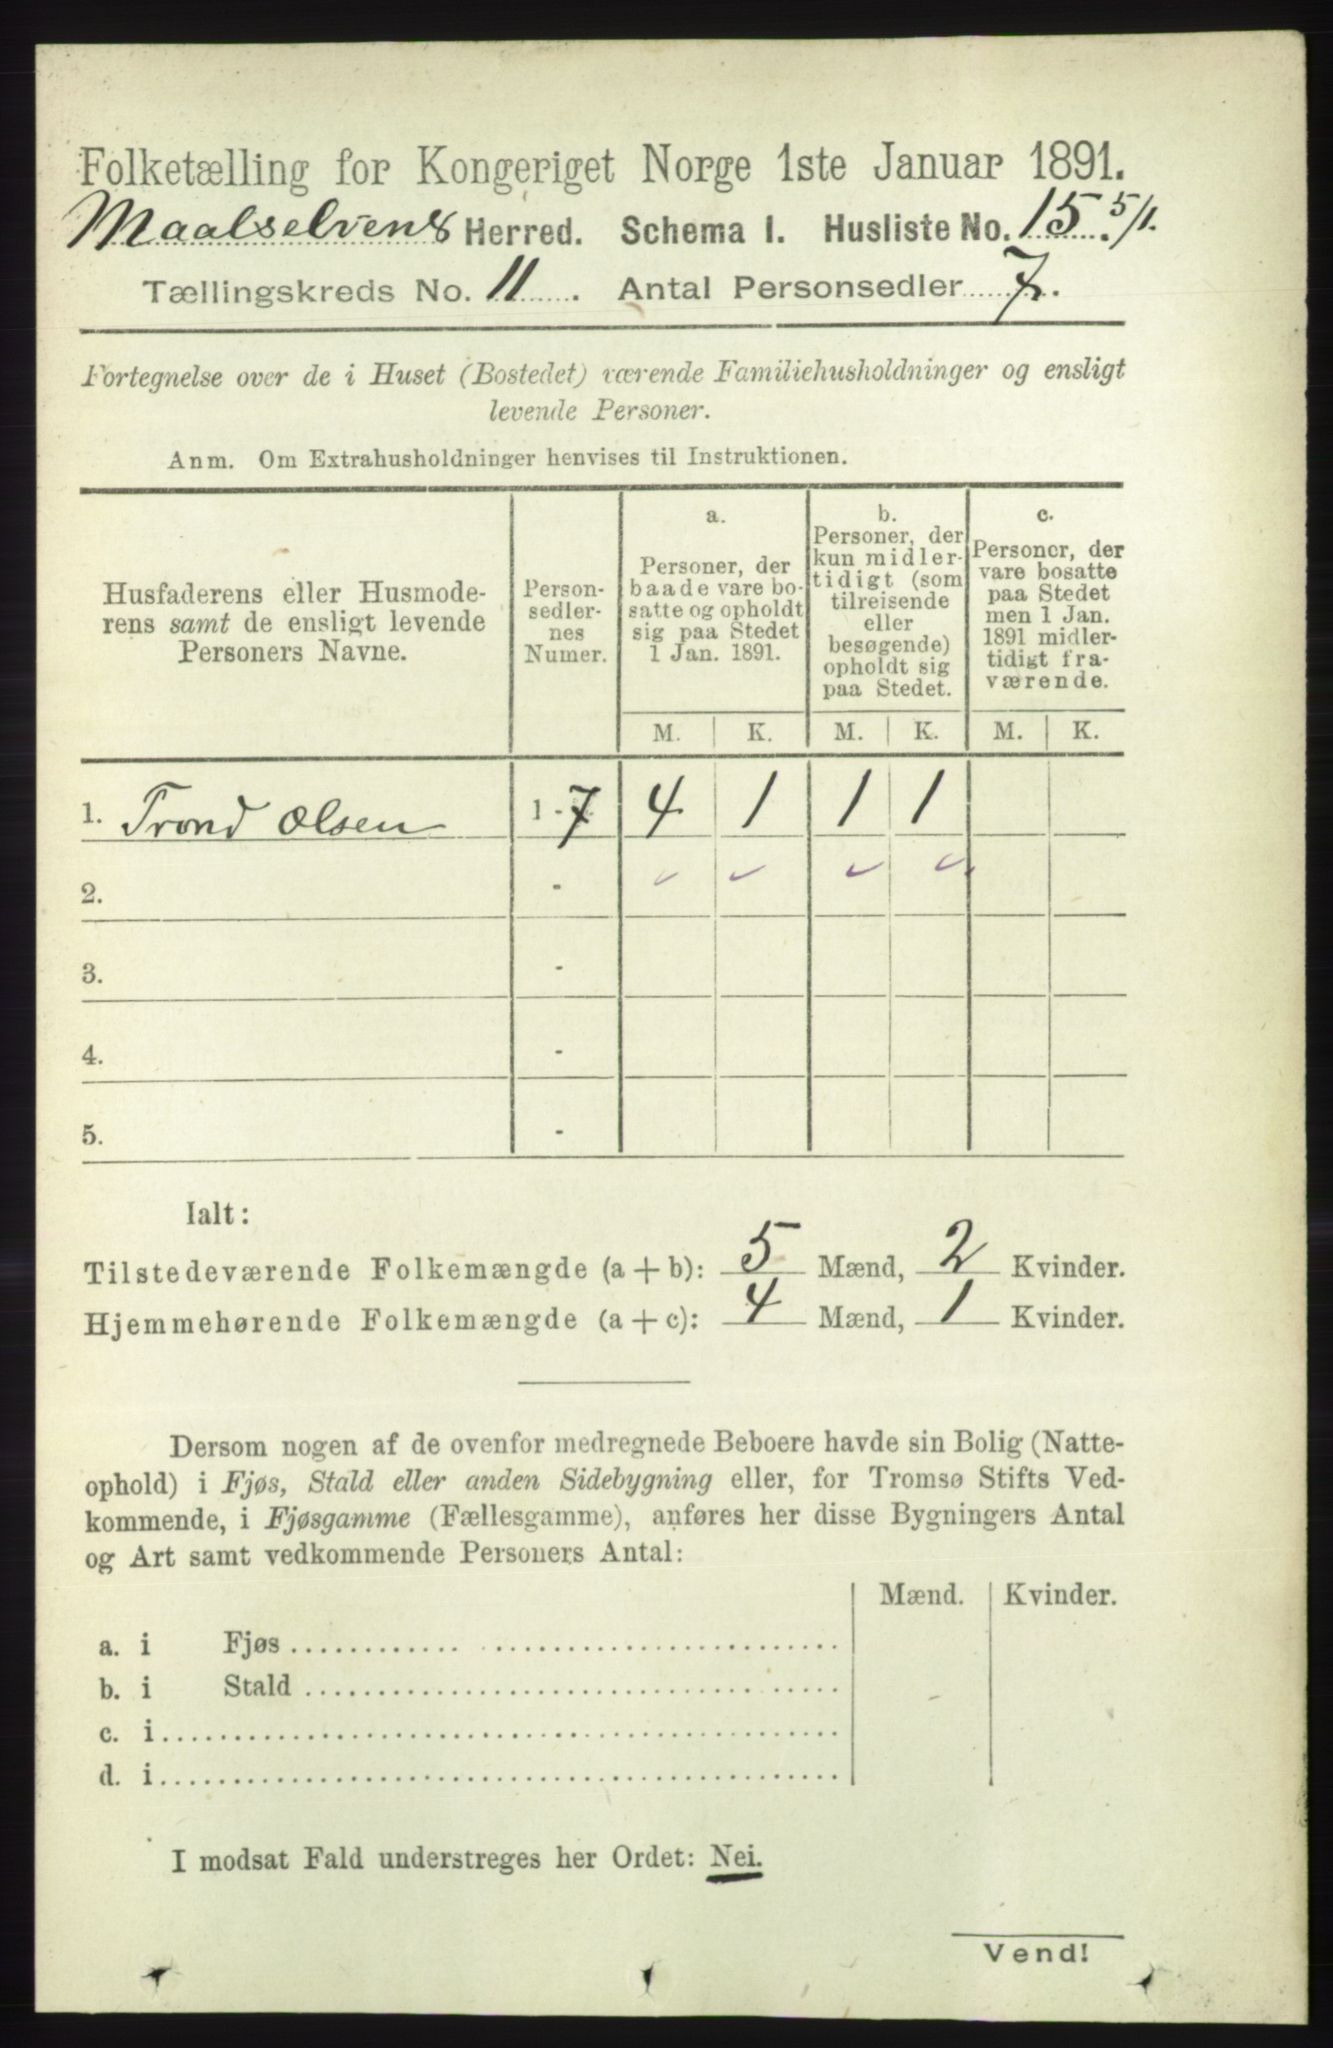 Folketælling for Kongeriget Norge 1ste Januar 1891.
Maalselvens Herred. Schema I. Husliste No. 15. 5/1.
Tællingskreds No. 11. Antal Personsedler 7.
Fortegnelse over de i Huset (Bostedet) værende Familiehusholdninger og ensligt
levende Personer.
Anm. Om Extrahusholdninger henvises til Instruktionen.
Husfaderens eller Husmode-
rens samt de ensligt levende
Personers Navne.
Person-
sedler-
nes
Numer.
a.
Personer, der
baade vare bo-
satte og opholdt
sig paa Stedet
1 Jan. 1891.
b.
Personer, der
kun midler-
tidigt (som
tilreisende
eller
besøgende)
opholdt sig
paa Stedet.
c.
Personer, der
vare bosatte
paa Stedet
men 1 Jan.
1891 midler-
tidigt fra-
værende.
M. K. M. K. M. K.
1. Trond Olsen 1 - 7 4 1 1 1
2. - ✓ ✓ ✓ ✓
3. -
4. -
5. -
Ialt:
Tilstedeværende Folkemængde (a + b): 5 Mænd, 2 Kvinder.
Hjemmehørende Folkemængde (a + c): 4 Mænd, 1 Kvinder.
Dersom nogen af de ovenfor medregnede Beboere havde sin Bolig (Natte-
ophold) i Fjøs, Stald eller anden Sidebygning eller, for Tromsø Stifts Ved-
kommende, i Fjøsgamme (Fællesgamme), anføres her disse Bygningers Antal
og Art samt vedkommende Personers Antal:
Mænd. Kvinder.
a. i Fjøs
b. i Stald
c. i
d. i
I modsat Fald understreges her Ordet: Nei.
Vend!